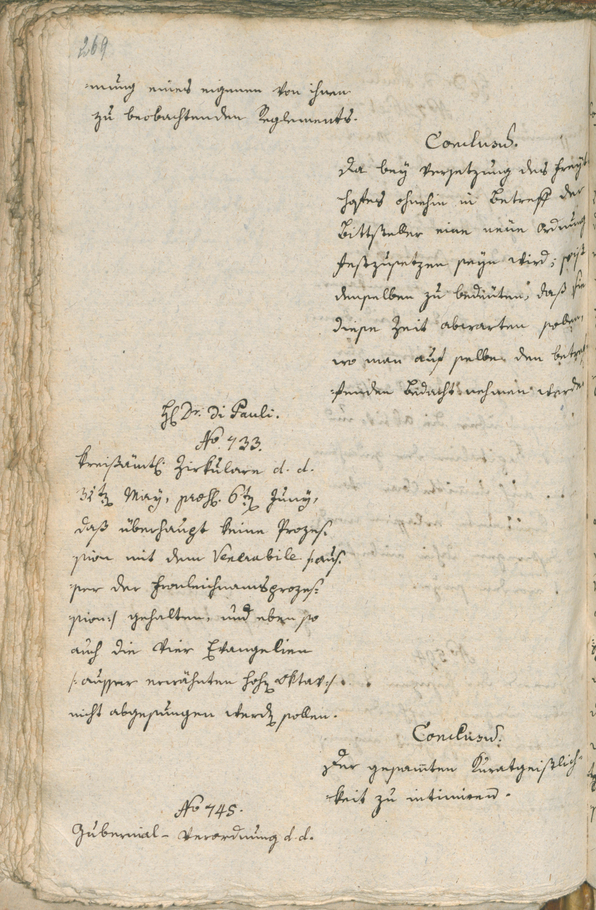 269
-mung eines eigenen von ihnen
zu beobachtenden Reglements.
Conclusū.
Da bey Versetzung des Freyt-
hofes ohnehin in Betreff der
Bittsteller eine neue Ordnung
festzusetzen seyn wird; so ist
denselben zu bedeuten, daß sie
diese Zeit abwarten sollen,
wo man auf selbe den betref-
fenden Bedacht nehmen werde.
H. Dr. Di Pauli.
No 733.
Kreisämtl. Zirkulare d. d.
31t May, præs. 6t Juny,
daß überhaupt keine Prozes-
sion mit dem Venerabile /:aus-
ser der Fronleichnamsprozes-
sion:/ gehalten, und eben so
auch die vier Evangelien
/:ausser erwähnten hohen Oktav:/
nicht abgesungen werden sollen.
Conclusū:
Der gesamten Kuratgeistlich-
keit zu intimiren.
No 745.
Gubernial-Verordnung d. d.